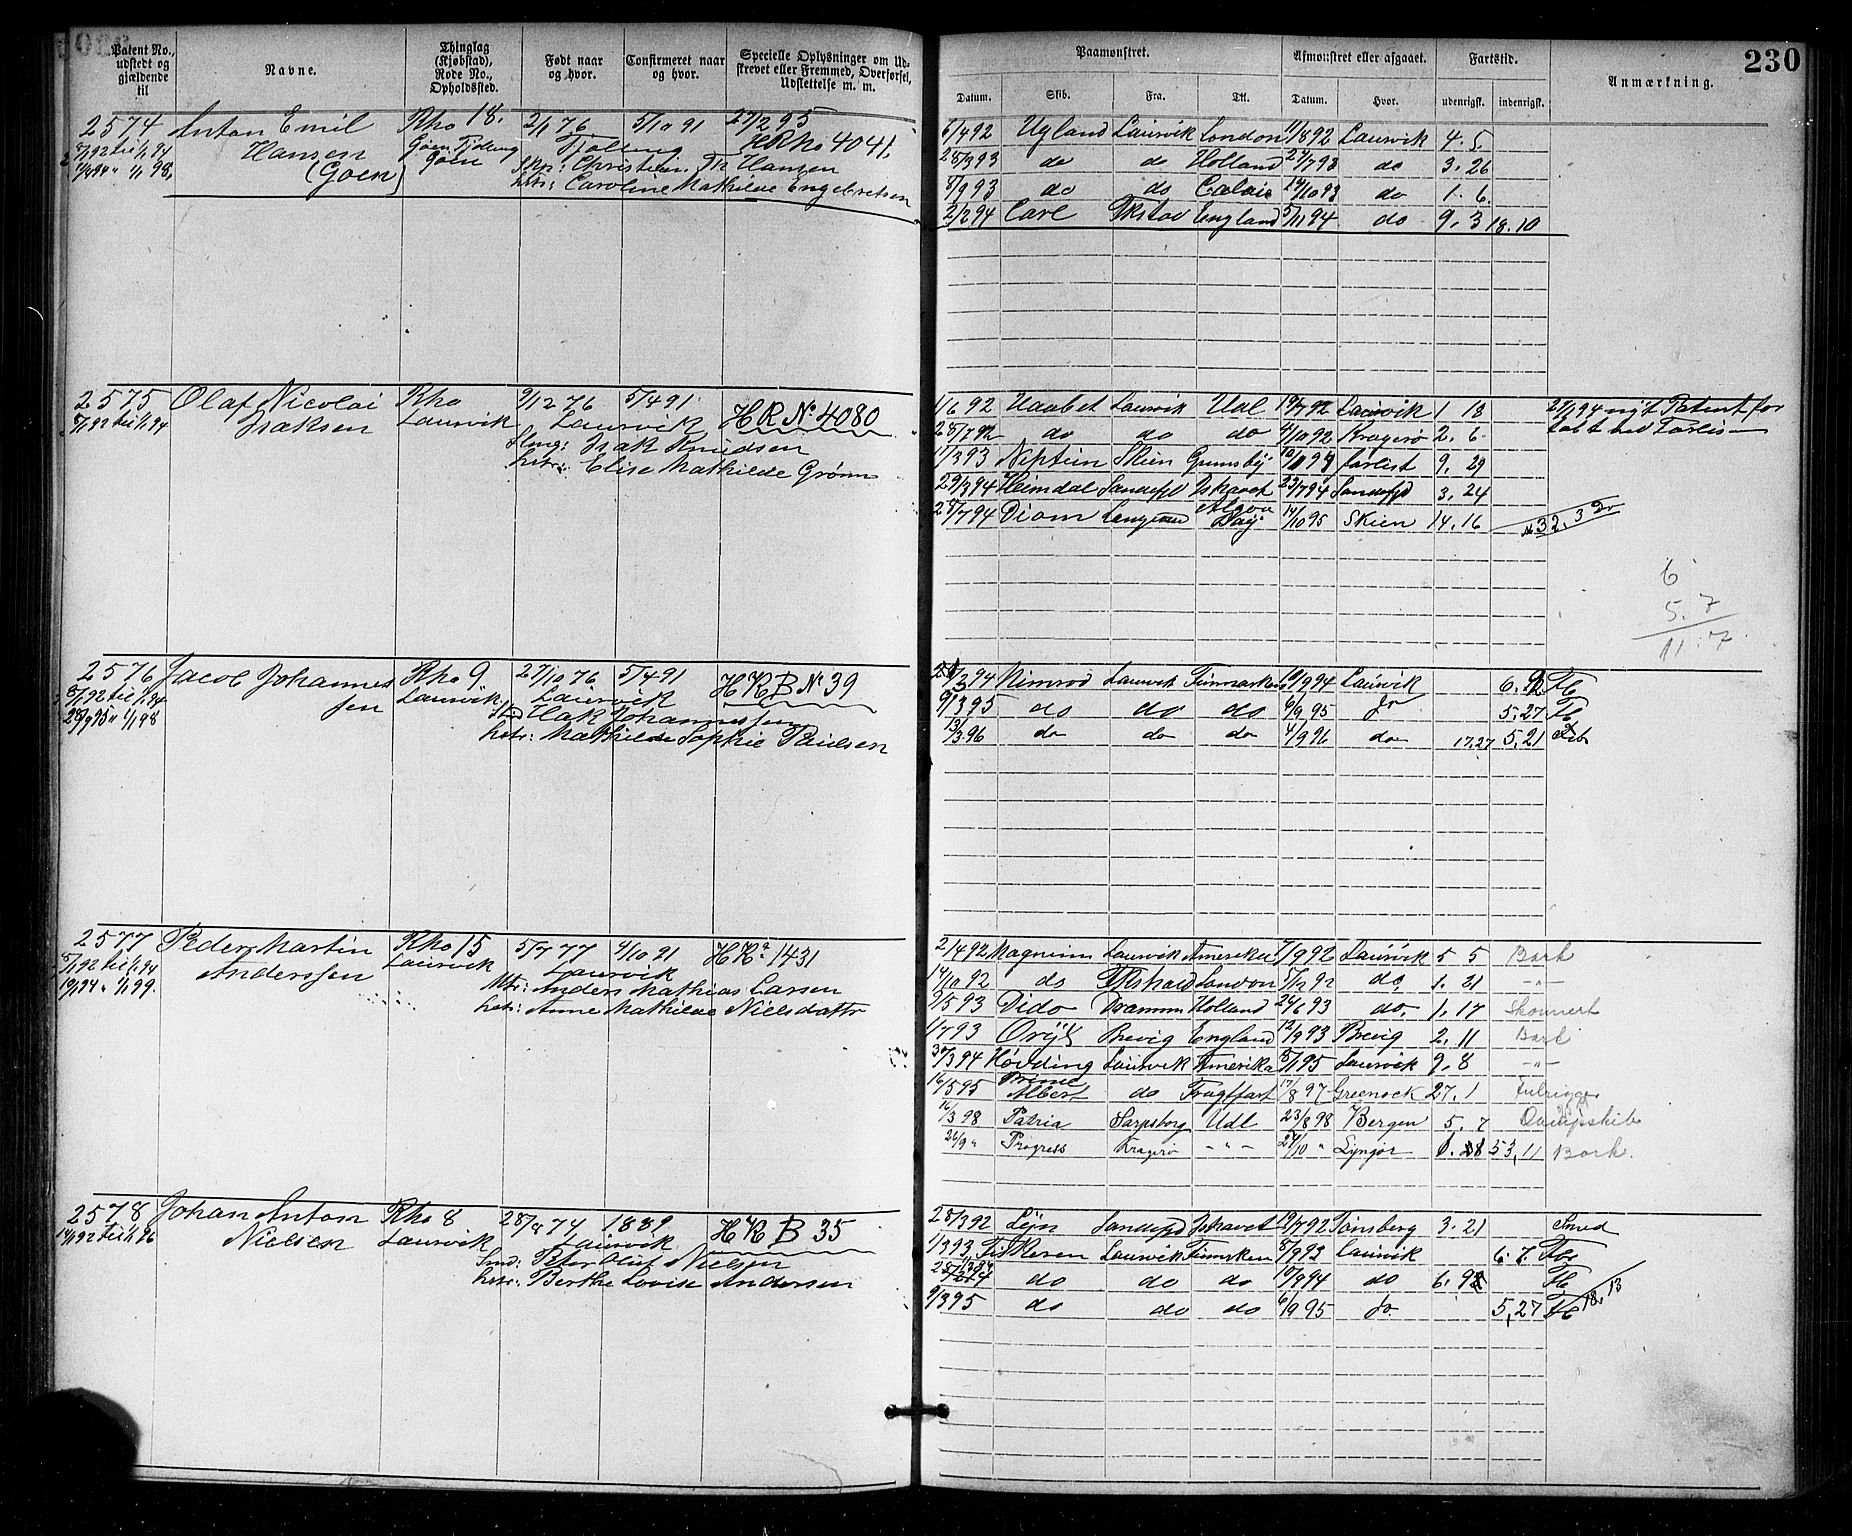 230
Patent No., udstedt og gjældende til
Navne.
Thinglag (Kjøbstad), Rode No., Opholdssted.
Født naar og hvor.
Confirmeret naar og hvor.
Specielle Oplysninger om Udskrevet eller Fremmed, Overførsel, Udslettelse m. m.
Paamønstret.
Afmønstret eller afgaaet.
Fartstid.
Anmærkning.
Datum. Skib. Fra. Til. Datum. Hvor. udenrigsk. indenrigsk.
2574 Anton Emil Rho 18. 2/1 76 5/10 91 27/2 95
8/1 92 til 1/1 94 Hansen Goen Fjølung Fjølung HRho 4041.
" 1/1 98. (Goen) Goen Christian Fr Hansen
Caroline Mathilde Engebretsen
6/4 92 Ugland Laurvik London 11/8 92 Laurvik 4. 5
28/3 93 do do Holland 27/7 93 do 3. 26
8/9 93 do do Calais 14/10 93 do 1. 6.
2/2 94 Carl England 5/11 94 do 9. 3 18. 10
2575 Olaf Nicolai Rho 9/12 76 5/4 91
8/1 92 til 1/1 94 Isaksen Laurvik Laurvik HRNo 4080
Isak Knudsen
Elise Mathilde Grønn
1/6 92 Haabet Laurvik Udl 19/7 92 Laurvik 1 18 27/1 94 nyt Patent for
28/7 92 do do do 4/10 92 Kragerø 2. 6. tabt ved Forlis
1/3 93 Neptun Skien Grimsby forlist 9. 29
29/3 94 Heimdal Sandefjd 23/7 94 Sandefjd 3. 24
28/7 94 Diam Langesund Bay 14/10 95 Skien 14. 16 32. 3
6
5. 7
11. 7
2576 Jacob Johannes Rho 9 27/10 76 5/4 91 HRB No 39
8/1 92 til 1/1 94 sen Laurvik Laurvik
28/9 95 " 1/1 98 Isak Johannessen
Mathilde Sophie Paulsen
Nimrod Laurvik Finmarken 10/9 94 Laurvik 6. Fb
9/3 95 do do do 6/9 95 do 5. 27 Fb
13/3 96 do do do 4/9 96 do 17. 27 5. 21
2577 Peder Martin Rho 15 5/7 77 4/10 91 HRa 1431
8/1 92 til 1/1 94 Anderssen Laurvik Laurvik
" 1/1 99. Anders Mathias Larsen
Anne Mathilde Nielsdattr
2/4 92 Magnum Laurvik Amerika 7/9 92 Laurvik 5 5 Bark
14/10 92 do London 5/12 92 do, 1. 21 -"-
9/5 93 Dido Dramm Holland 24/6 93 do. 1. 17 Skonnert
1/7 93 Brevig England 12/9 93 Brevig 2. 11 Bark
30/3 94 Høvding Laurvik Amerika 8/1 95 Laurvik 9. 8 -"-
16/5 95 Prince Albert do Fragtfart 17/8 97 Greenock 27. 1 Fulrigger
16/3 98 Patria Sarpsborg Udl 23/8 98 Bergen 5. 7 Dampskib
26/9 " Progress Kragerø -"- 27/10 " Lyngør 53, 11 Bark.
2578 Johan Anton Rho 8 28/8 74 1889 HRB 35
14/1 92 til 1/1 96 Nielsen Laurvik Laurvik
Peter Oluf Nielsen
Berthe Lovise Andersen
28/3 92 Lyn Sandefjd Ishavet 19/7 92 Tønsberg 3. 21 Smed
1/3 93 Fiskeren Laurvik Finmrken 8/9 93 Laurvik 6. 7. Fb
do do do 10/9 94 do 6. Fb
9/3 95 do do do 6/9 95 do 5, 27 Fb 18. 13